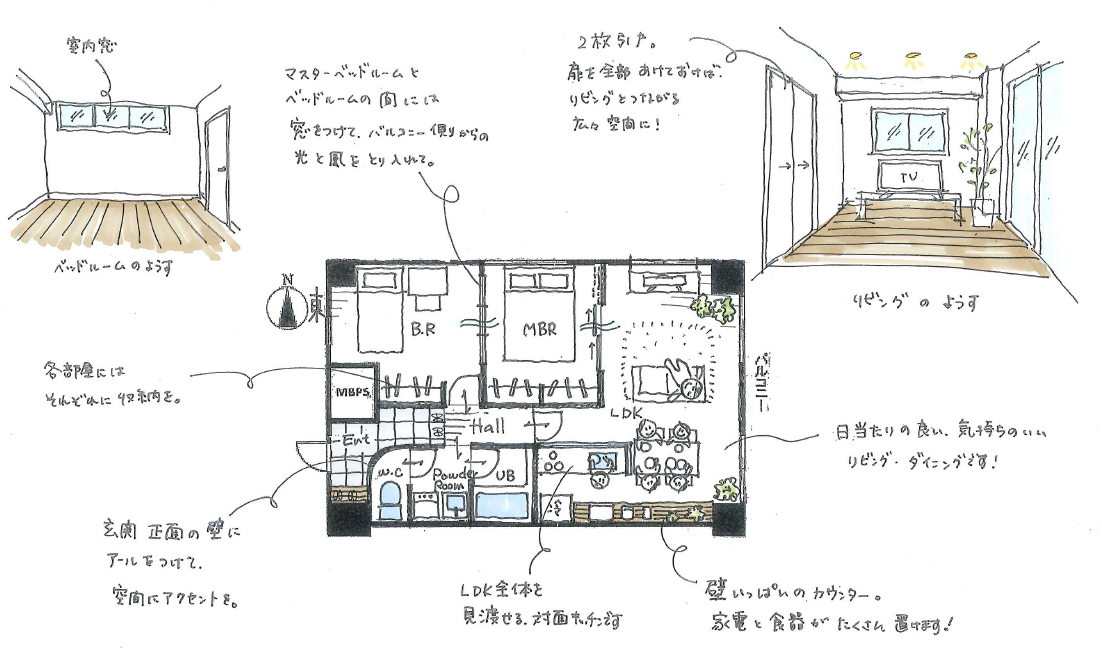 室内窓
ベッドルームのようす
マスターベッドルームと
ベッドルームの間には
窓をつけて、バルコニー側からの
光と風をとり入れて。
2枚引戸。
扉を全部あけておけば、
リビングとつながる
広々空間に!
TV
リビングのようす
N
東
B.R
MBR
バルコニー
各部屋には
それぞれに収納を。
MBPS
Ent
Hall
LDK
W.C
Powder
Room
UB
冷
日当たりの良い、気持ちのいい
リビング・ダイニングです!
玄関正面の壁に
アールをつけて、
空間にアクセントを。
LDK全体を
見渡せる、対面キッチンです
壁いっぱいのカウンター。
家電と食器がたくさん置けます!